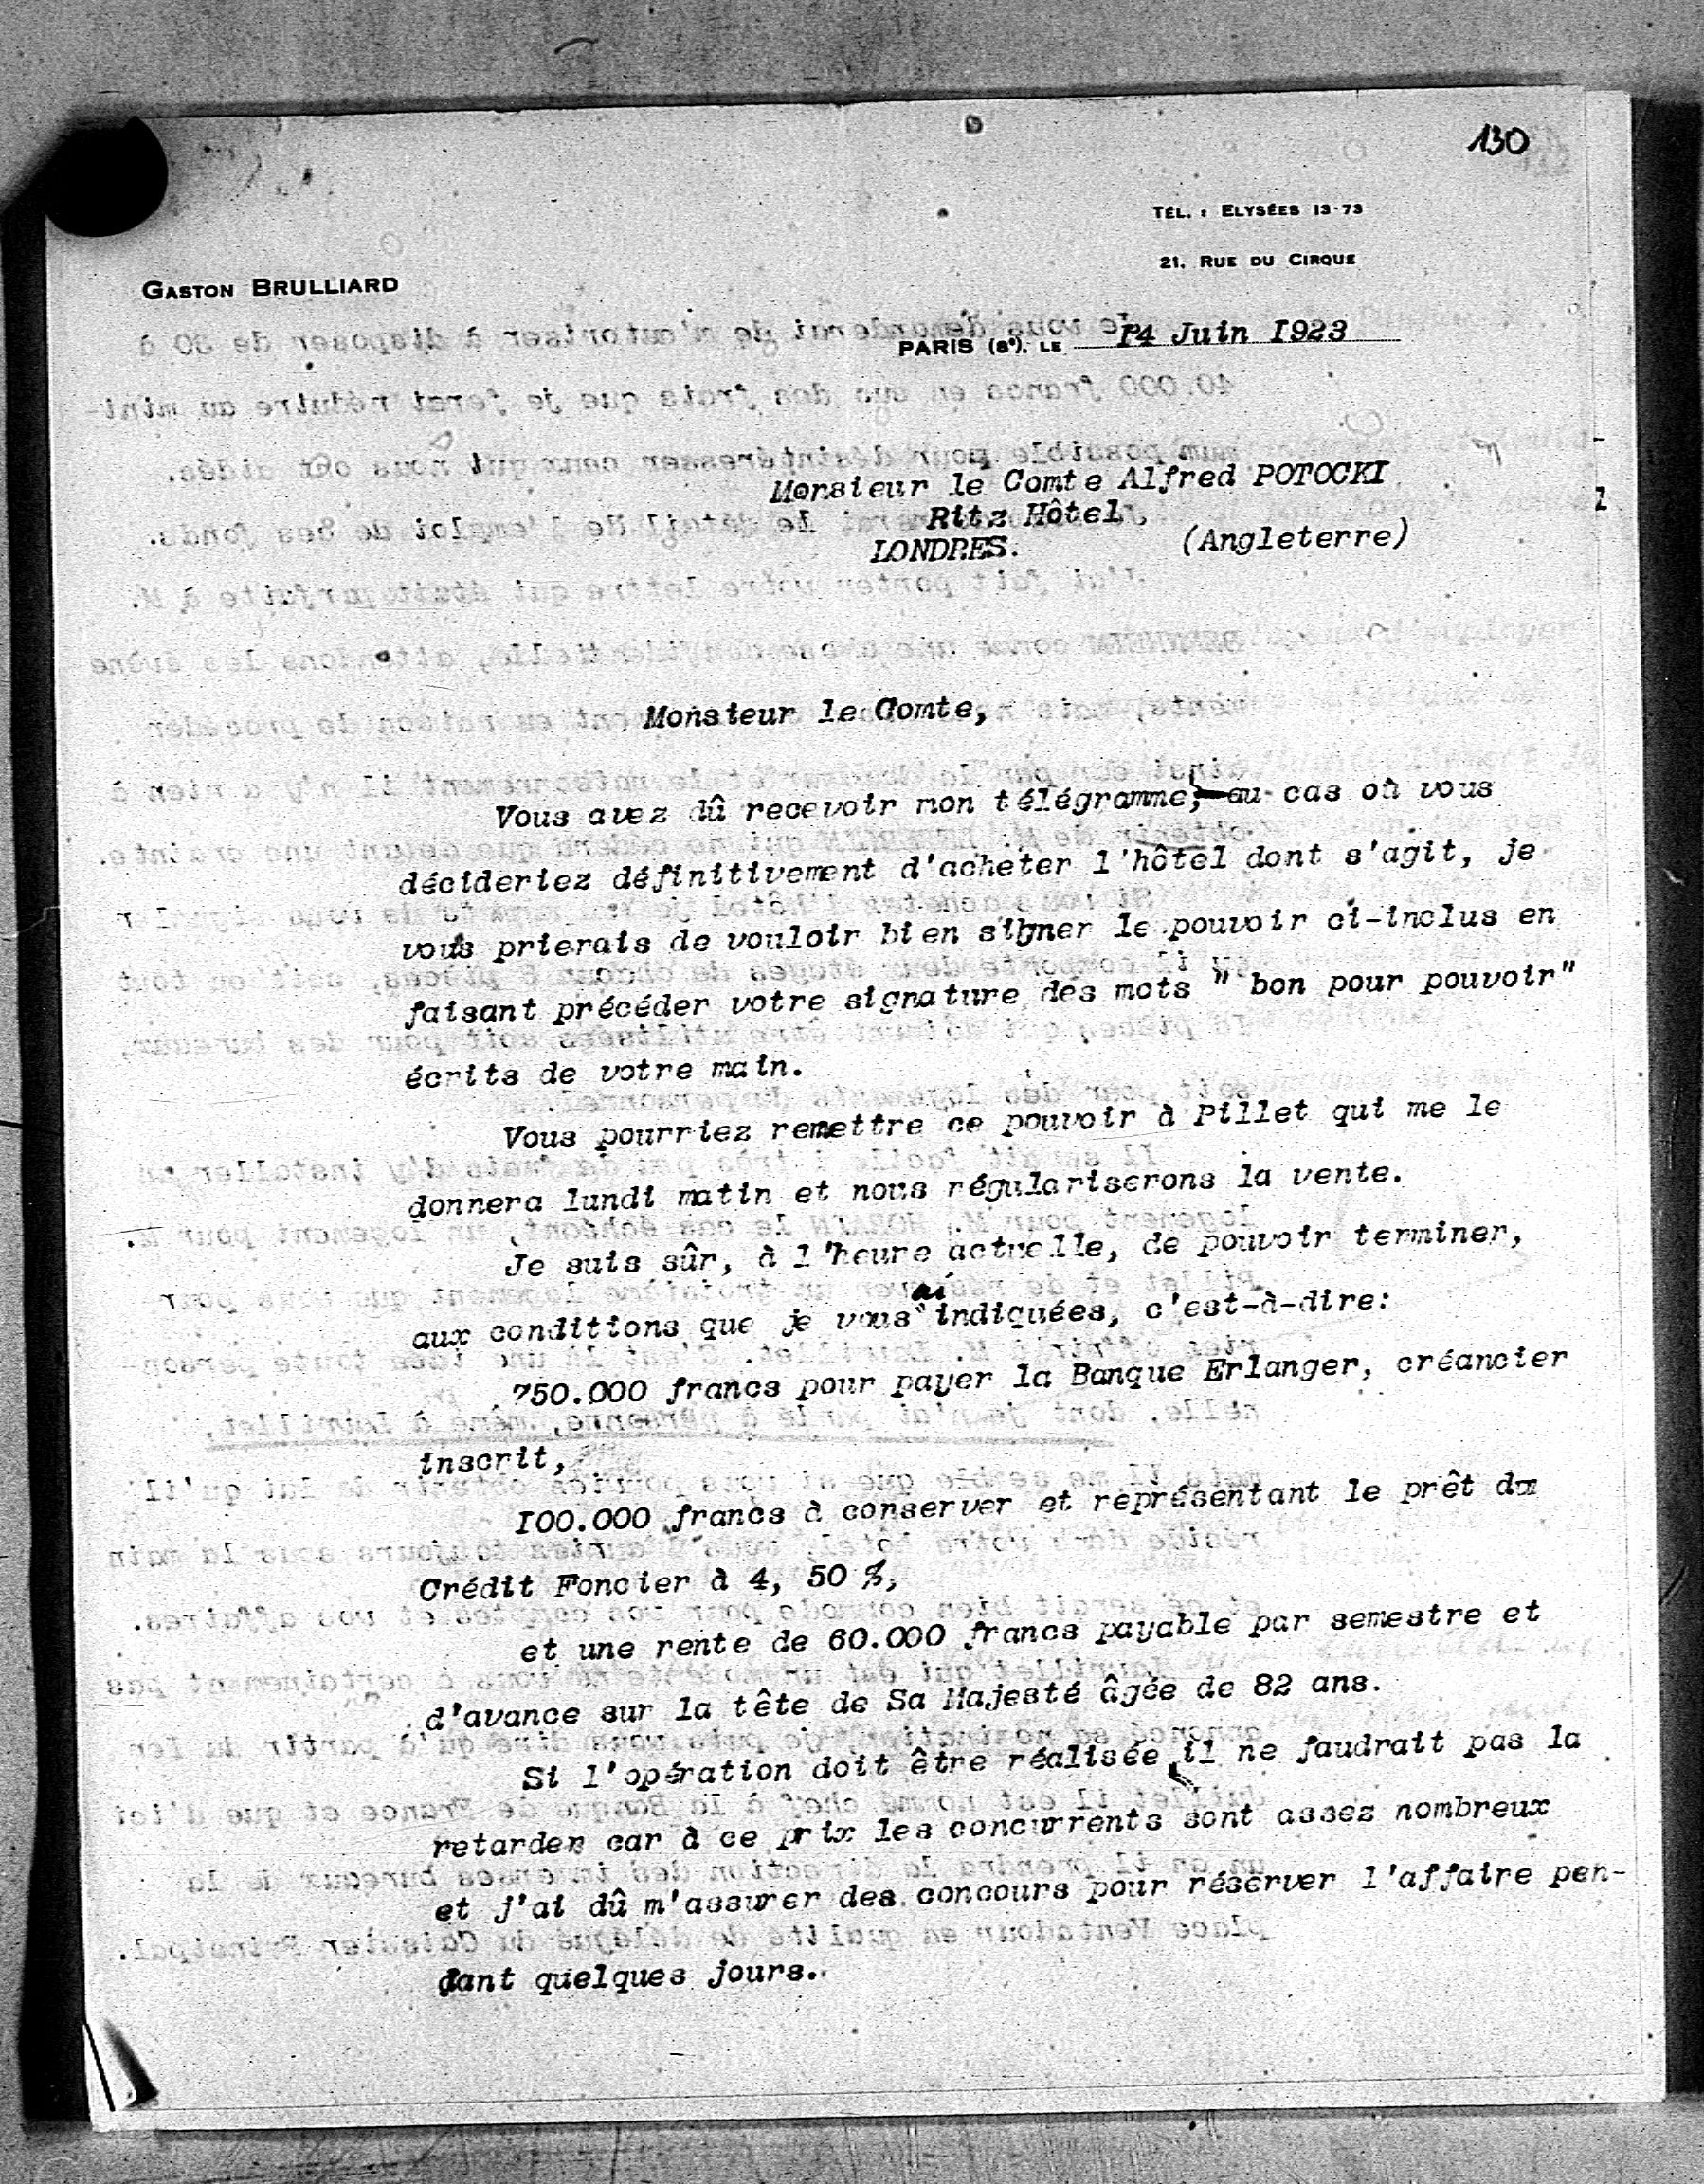 130
TÉL. : ELYSÉES 13-73
21, RUE DU CIRQUE
GASTON BRULLIARD
PARIS (8e), LE 14 Juin 1923
Monsieur le Comte Alfred POTOCKI
Ritz Hôtel.
LONDRES. (Angleterre)
Monsieur le Comte,
Vous avez dû recevoir mon télégramme; au cas où vous
décideriez définitivement d'acheter l'hôtel dont s'agit, je
vous prierais de vouloir bien signer le pouvoir ci-inclus en
faisant précéder votre signature des mots " bon pour pouvoir"
écrits de votre main.
Vous pourriez remettre ce pouvoir à Pillet qui me le
donnera lundi matin et nous régulariserons la vente.
Je suis sûr, à l'heure actuelle, de pouvoir terminer,
aux conditions que je vous ai indiquées, c'est-à-dire:
750.000 francs pour payer la Banque Erlanger, créancier
inscrit,
I00.000 francs à conserver et représentant le prêt du
Crédit Foncier à 4, 50 %,
et une rente de 60.000 francs payable par semestre et
d'avance sur la tête de Sa Majesté âgée de 82 ans.
Si l'opération doit être réalisée, il ne faudrait pas la
retarder car à ce prix les concurrents sont assez nombreux
et j'ai dû m'assurer des concours pour réserver l'affaire pen-
dant quelques jours.